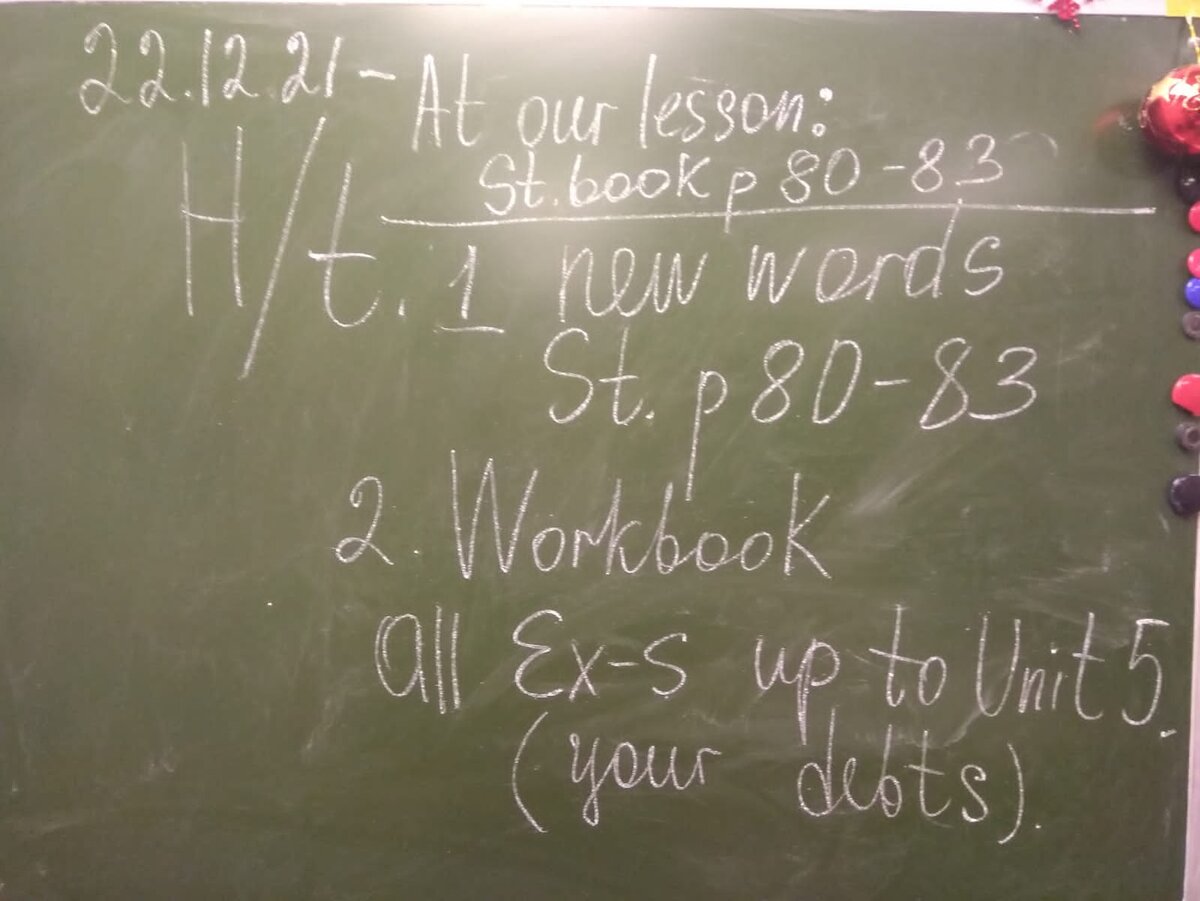 22.12.21 - At our lesson:
St. book p 80-83
H/t. 1 new words
St. p 80-83
2. Workbook
all Ex-s up to Unit 5.
(your debts).